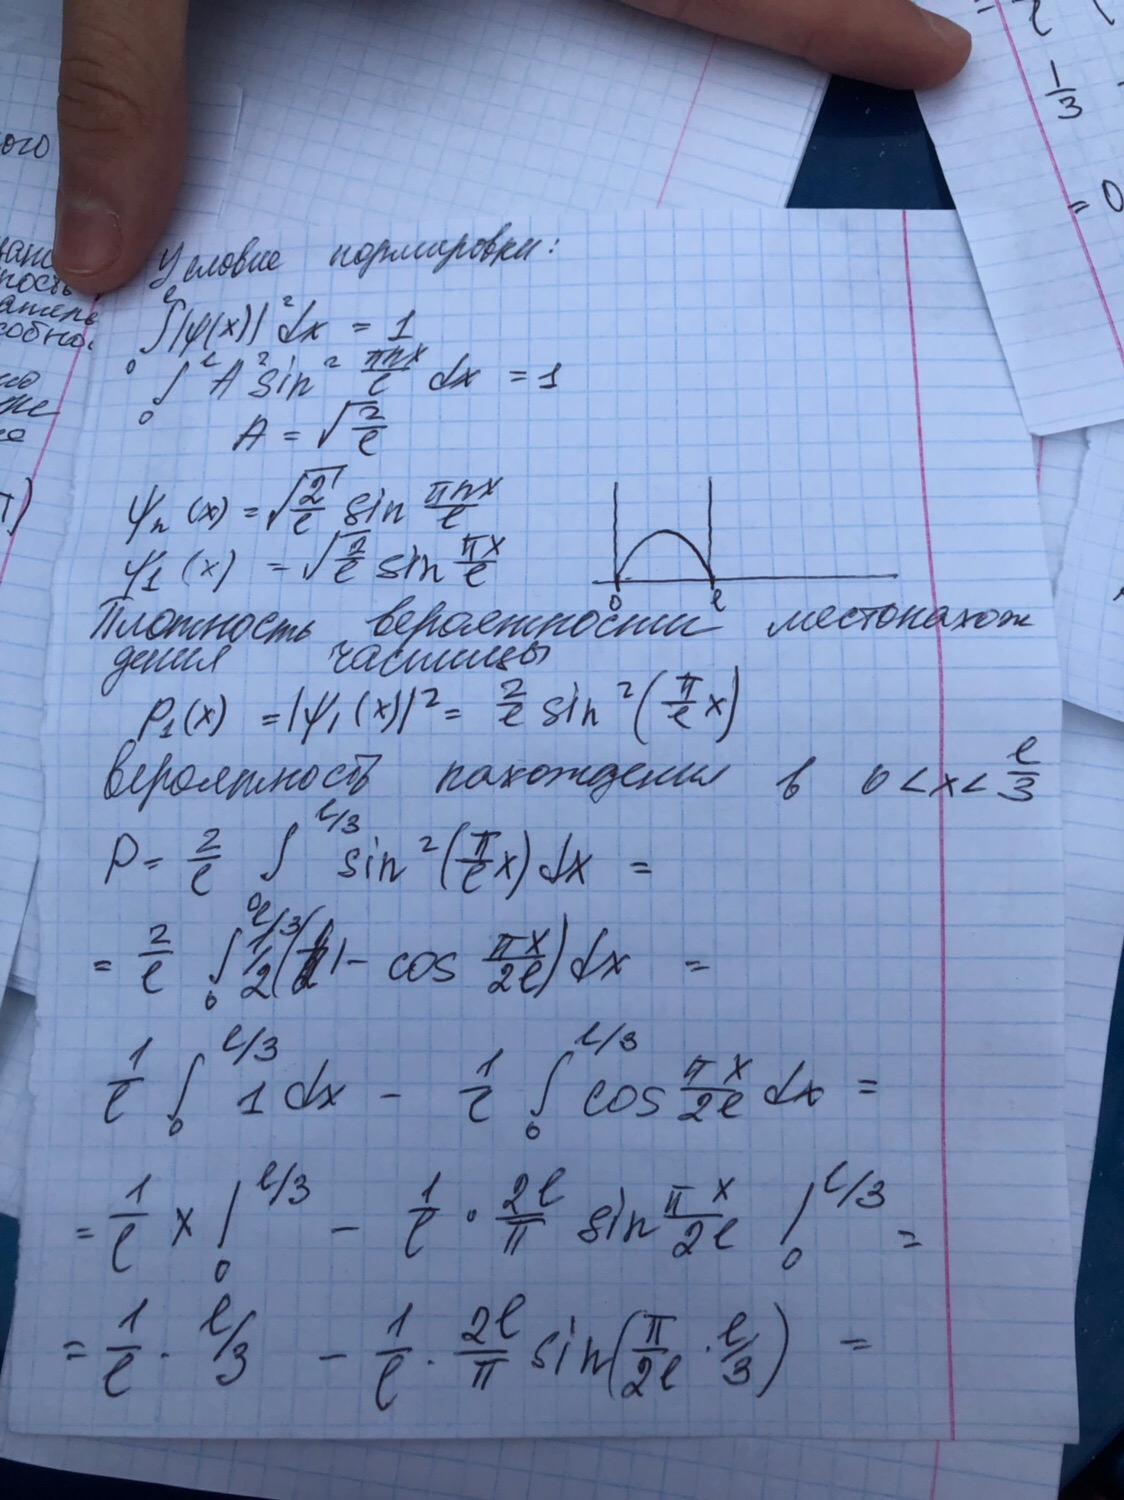 ого
1/3
= 0
Условие нормировки:
∫₀^ℓ |ψ(x)|² dx = 1
∫₀^ℓ A² sin² πnx/ℓ dx = 1
A = √(2/ℓ)
ψₙ(x) = √(2/ℓ) sin πnx/ℓ
ψ₁(x) = √(2/ℓ) sin πx/ℓ
0 ℓ
Плотность вероятности местонахож
дения частицы
P₁(x) = |ψ₁(x)|² = 2/ℓ sin²(π/ℓ x)
Вероятность нахождения в 0 < x < ℓ/3
P = 2/ℓ ∫₀^ℓ/3 sin²(π/ℓ x) dx =
= 2/ℓ ∫₀^ℓ/3 1/2(1 - cos πx/2ℓ) dx =
1/ℓ ∫₀^ℓ/3 1 dx - 1/ℓ ∫₀^ℓ/3 cos πx/2ℓ dx =
= 1/ℓ x |₀^ℓ/3 - 1/ℓ · 2ℓ/π sin πx/2ℓ |₀^ℓ/3 =
= 1/ℓ · ℓ/3 - 1/ℓ · 2ℓ/π sin(π/2ℓ · ℓ/3) =